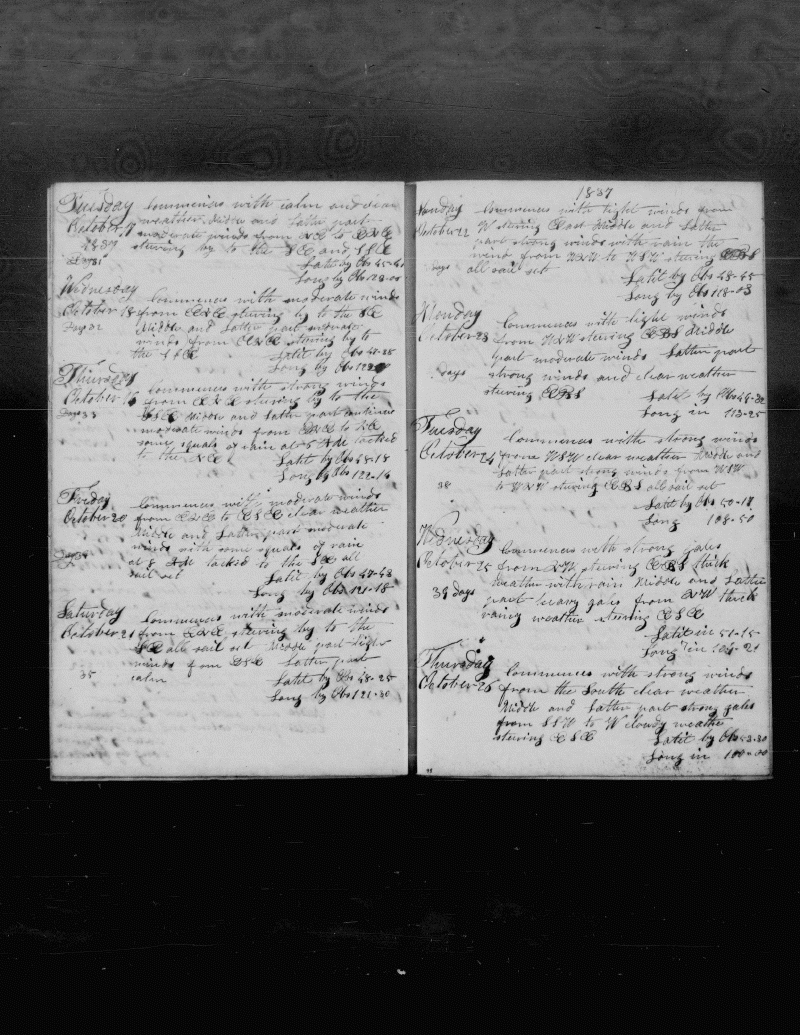 Tuesday Commences with calm and clear
October 17 weather Middle and latter part
1837 moderate winds from ENE to ENE
Days 31 stering by to the SE and SSE
Latit by Obs 45-41
Long by Obs 123-00
Wednesday
Commences with moderate winds
October 18 from ENE stering by to the SE
Days 32 Middle and Latter part moderate
winds from ENE stering by to
the SSE Latit by Obs 47-28
Long by Obs 122
Thursday
Commences with strong winds
October 19 from ENE stering by to the
Days 33 SSE Middle and Latter part continues
moderate winds from ENE to NE
some squals of rain at 5 AM tacked
to the NE Latit by Obs 48-18
Long by Obs 122-14
Friday
Commences with moderate winds
October 20 from ENE to ESE clear weather
Middle and Latter part moderate
winds with some squals of rain
Days 34 at 8 AM tacked to the SE all
sail set Latit by Obs 47-48
Long by Obs 121-18
Saturday
Commences with moderate winds
October 21 from ENE stering by to the
SE all sail set Middle part light
winds from ESE Latter part
35 calm Latit by Obs 48-25
Long by Obs 121-30
1837
Sunday Commences with light winds from
October 22 W stering East Middle and Latter
part strong winds with rain the
wind from WNW to WSW stering EBS
days all sail set Latit by Obs 48-45
Long by Obs 118-03
Monday
Commences with light winds
October 23 from WNW stering EBS Middle
part moderate winds Latter part
days strong winds and clear weather
stering EBS Latit by Obs 49-32
Long in 113-25
Tuesday
Commences with strong winds
October 24 from WSW clear weather Middle and
Latter part strong winds from WSW
38 to WNW stering EBS all sail set
Latit by Obs 50-18
Long 108-50
Wednesday
Commences with strong gales
October 25 from NW stering EBS thick
weather with rain Middle and Latter
39 days part heavy gales from NW thick
rainy weather stering ESE
Latit in 51-15
Long in 104-21
Thursday
Commences with strong winds
October 26 from the South clear weather
Middle and Latter part strong gales
from SSW to W cloudy weather
stering ESE Latit by Obs 53-30
Long in 100-00